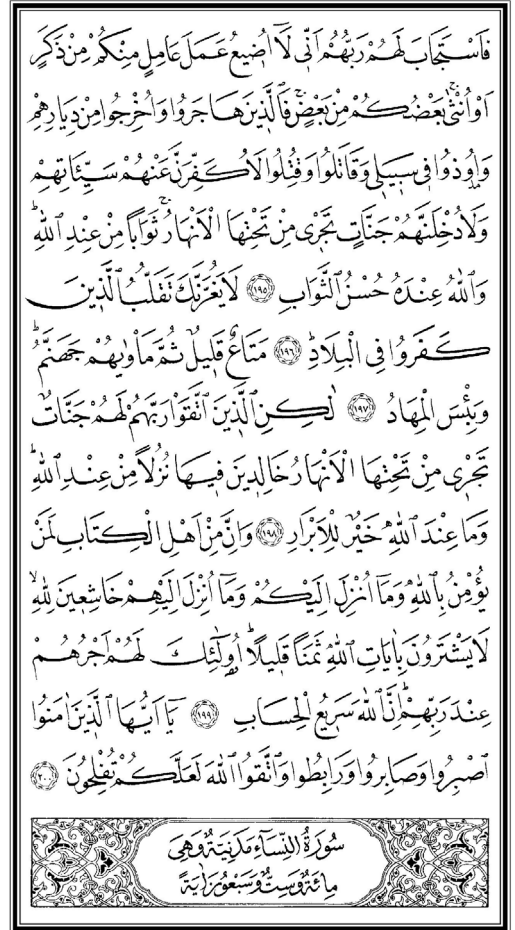 فَاسْتَجَابَ لَهُمْ رَبُّهُمْ اَنّ۪ي لَٓا اُض۪يعُ عَمَلَ عَامِلٍ مِنْكُمْ مِنْ ذَكَرٍ
اَوْ اُنْثٰىۚ بَعْضُكُمْ مِنْ بَعْضٍۚ فَالَّذ۪ينَ هَاجَرُوا وَاُخْرِجُوا مِنْ دِيَارِهِمْ
وَاُو۫ذُوا ف۪ي سَب۪يل۪ي وَقَاتَلُوا وَقُتِلُوا لَاُكَفِّرَنَّ عَنْهُمْ سَيِّـَٔاتِهِمْ
وَلَاُدْخِلَنَّهُمْ جَنَّاتٍ تَجْر۪ي مِنْ تَحْتِهَا الْاَنْهَارُۚ ثَوَابًا مِنْ عِنْدِ اللّٰهِۜ
وَاللّٰهُ عِنْدَهُ حُسْنُ الثَّوَابِ ﴿١٩٥﴾ لَا يَغُرَّنَّكَ تَقَلُّبُ الَّذ۪ينَ
كَفَرُوا فِي الْبِلَادِۜ ﴿١٩٦﴾ مَتَاعٌ قَل۪يلٌ ثُمَّ مَأْوٰيهُمْ جَهَنَّمُۜ
وَبِئْسَ الْمِهَادُ ﴿١٩٧﴾ لٰكِنِ الَّذ۪ينَ اتَّقَوْا رَبَّهُمْ لَهُمْ جَنَّاتٌ
تَجْر۪ي مِنْ تَحْتِهَا الْاَنْهَارُ خَالِد۪ينَ ف۪يهَا نُزُلًا مِنْ عِنْدِ اللّٰهِۜ
وَمَا عِنْدَ اللّٰهِ خَيْرٌ لِلْاَبْرَارِ ﴿١٩٨﴾ وَاِنَّ مِنْ اَهْلِ الْكِتَابِ لَمَنْ
يُؤْمِنُ بِاللّٰهِ وَمَٓا اُنْزِلَ اِلَيْكُمْ وَمَٓا اُنْزِلَ اِلَيْهِمْ خَاشِع۪ينَ لِلّٰهِۙ
لَا يَشْتَرُونَ بِاٰيَاتِ اللّٰهِ ثَمَنًا قَل۪يلًاۜ اُو۬لٰٓئِكَ لَهُمْ اَجْرُهُمْ
عِنْدَ رَبِّهِمْۜ اِنَّ اللّٰهَ سَر۪يعُ الْحِسَابِ ﴿١٩٩﴾ يَٓا اَيُّهَا الَّذ۪ينَ اٰمَنُوا
اصْبِرُوا وَصَابِرُوا وَرَابِطُوا وَاتَّقُوا اللّٰهَ لَعَلَّكُمْ تُفْلِحُونَ ﴿٢٠٠﴾
سُورَةُ النِّسَٓاءِ مَدَنِيَّةٌ وَهِيَ
مِائَةٌ وَسِتٌّ وَسَبْعُونَ اٰيَةً